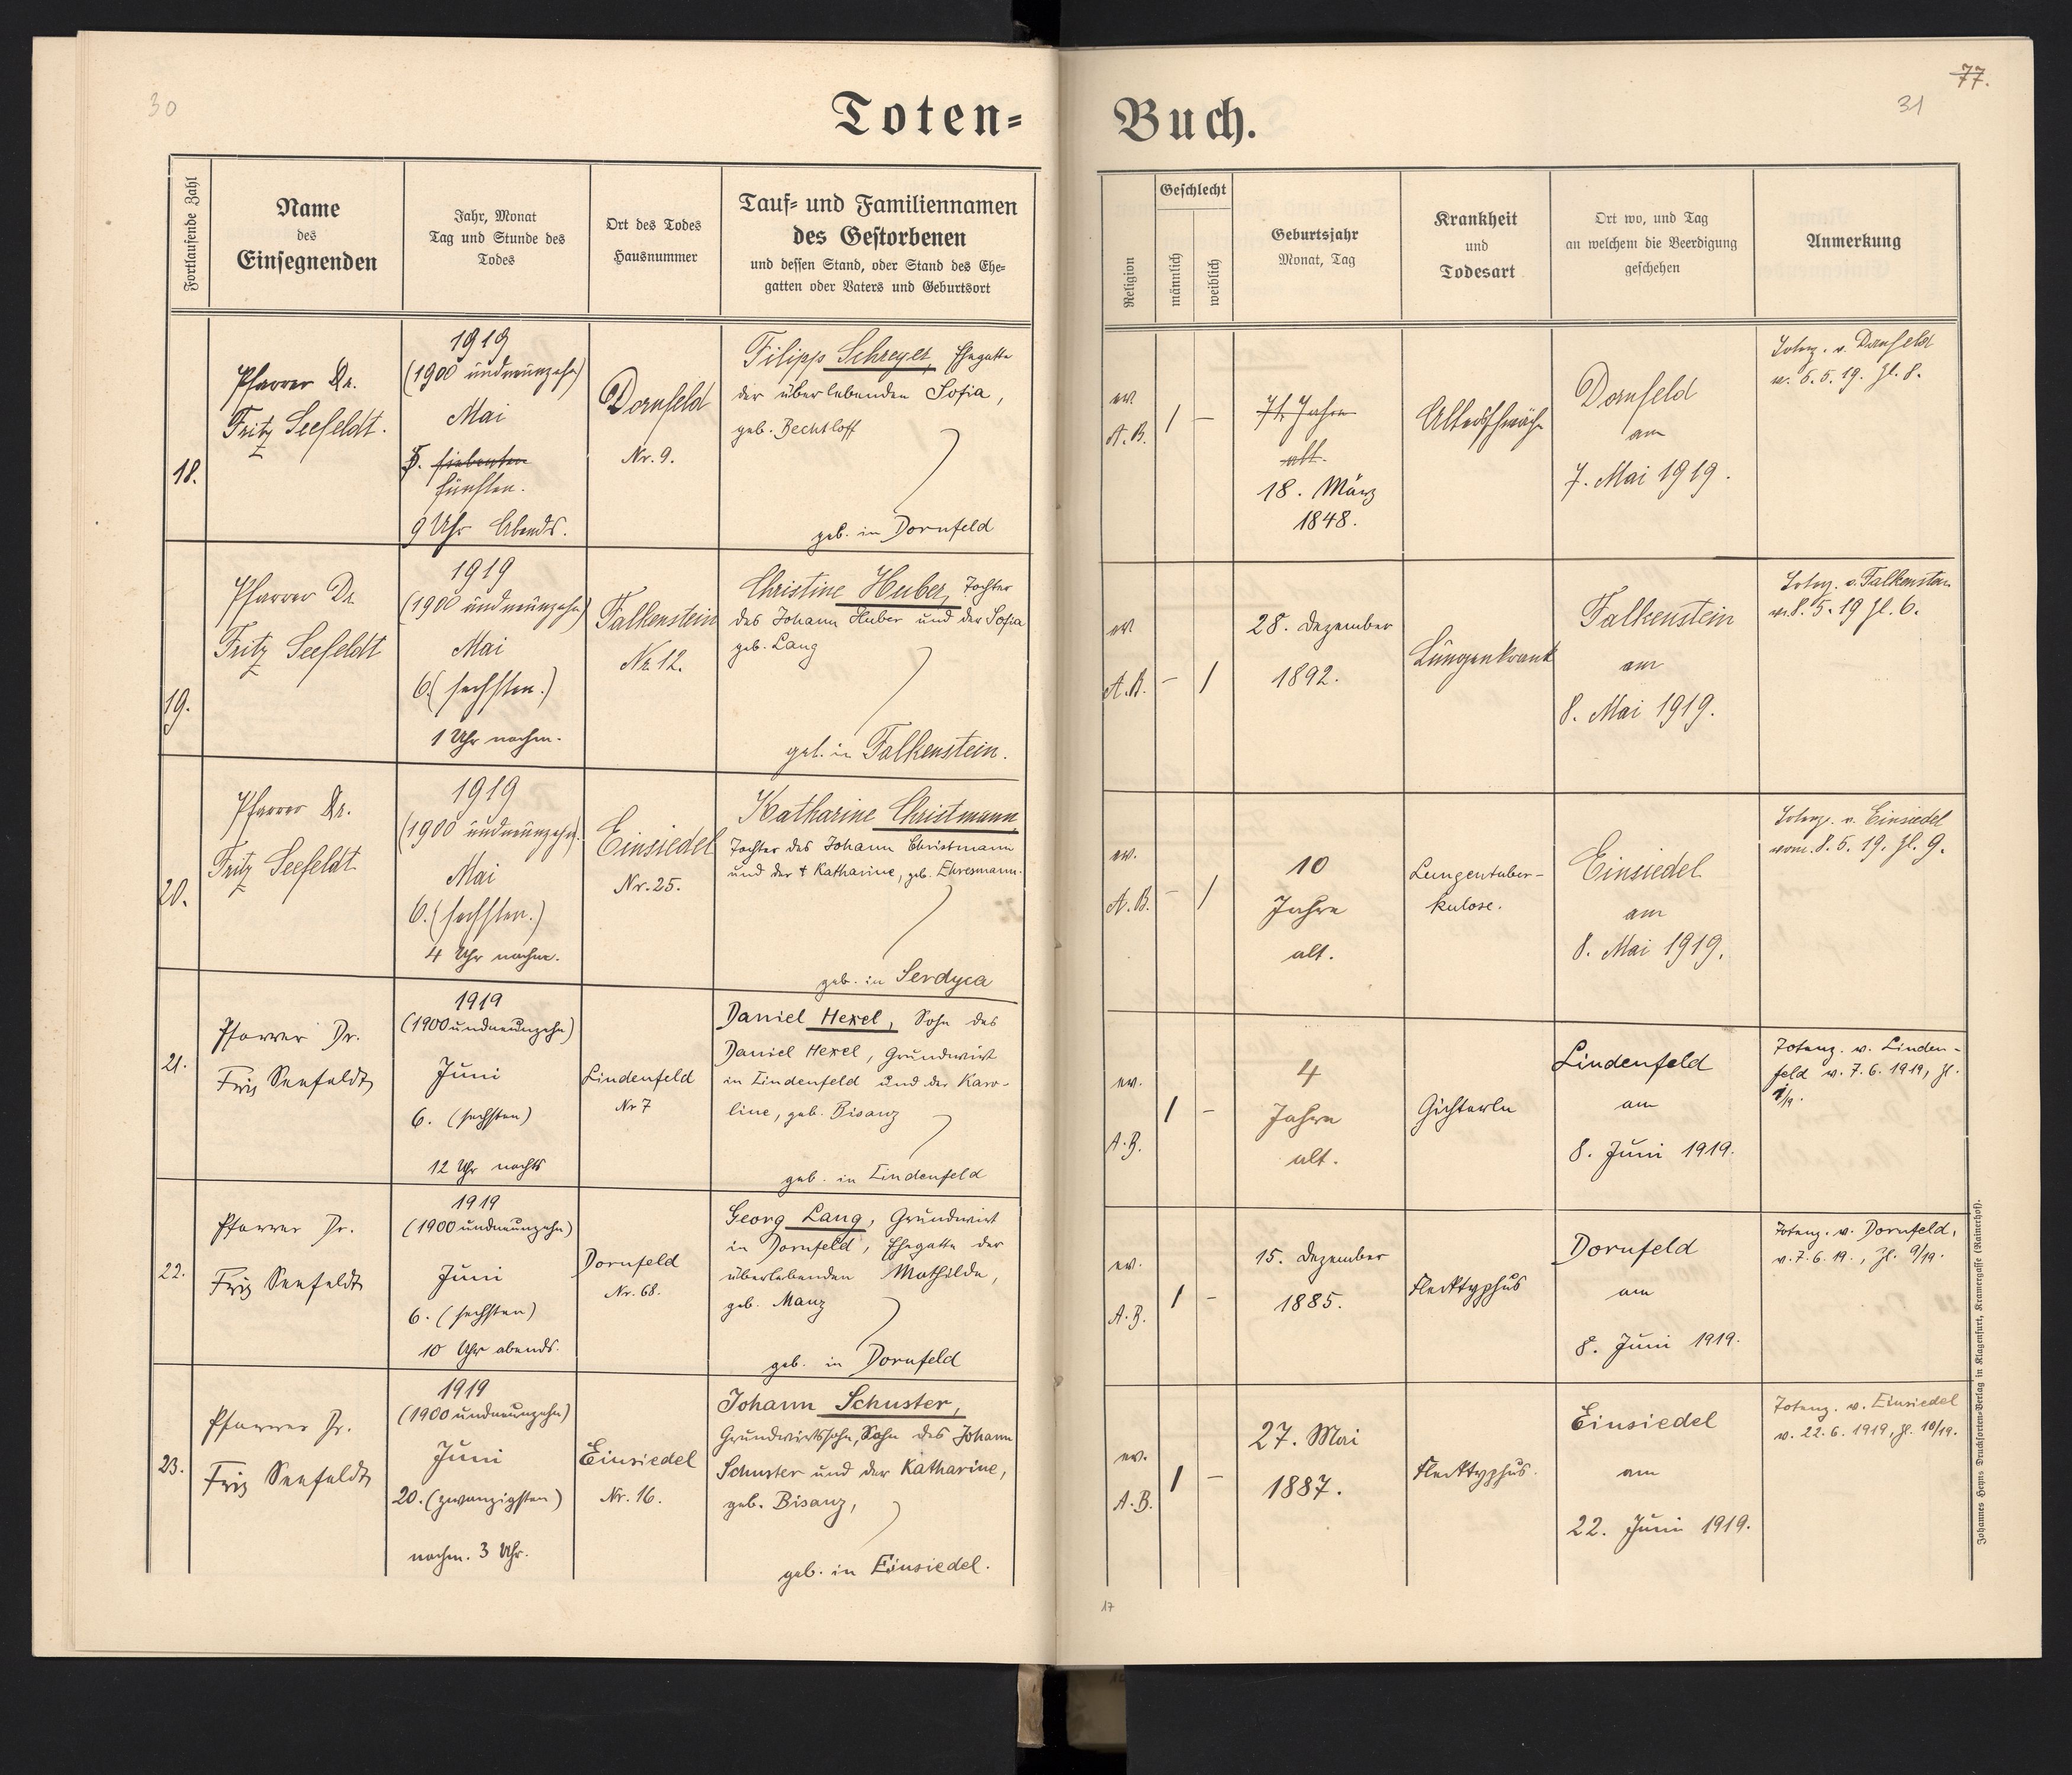 30
Toten=
Fortlaufende Zahl
Name
des
Einsegnenden
Jahr, Monat
Tag und Stunde des
Todes
Ort des Todes
Hausnummer
Tauf= und Familiennamen
des Gestorbenen
und dessen Stand, oder Stand des Ehe=
gatten oder Vaters und Geburtsort
18.
Pfarrer Dr.
Fritz Seefeldt.
1919
(1900 undneunzehn)
Mai
5. siebenten
fünften.
9 Uhr Abends.
Dornfeld
Nr. 9.
Filipp Schreyer, Ehegatte
der überlebenden Sofia,
geb. Bechtloff
geb. in Dornfeld
19.
Pfarrer Dr.
Fritz Seefeldt
1919
(1900 undneunzehn)
Mai
6. (sechsten.)
1 Uhr nachm.
Falkenstein
Nr. 12.
Christine Huber, Tochter
des Johann Huber und der Sofia
geb. Lang
geb. in Falkenstein.
20.
Pfarrer Dr.
Fritz Seefeldt
1919
(1900 undneunzehn).
Mai
6. (sechsten.)
4 Uhr nachm.
Einsiedel
Nr. 25.
Katharine Christmann
Tochter des Johann Christmann
und der † Katharine, geb. Ehresmann.
geb. in Serdyca
21.
Pfarrer Dr.
Friz Seefeldt
1919
(1900 undneunzehn)
Juni
6. (sechsten)
12 Uhr nachts
Lindenfeld
Nr 7
Daniel Hexel, Sohn des
Daniel Hexel, Grundwirt
in Lindenfeld und der Karo-
line, geb. Bisanz
geb. in Lindenfeld
22.
Pfarrer Dr.
Friz Seefeldt
1919
(1900 undneunzehn)
Juni
6. (sechsten)
10 Uhr abends.
Dornfeld
Nr. 68.
Georg Lang, Grundwirt
in Dornfeld, Ehegatte der
überlebenden Mathilde,
geb. Manz
geb. in Dornfeld
23.
Pfarrer Dr.
Friz Seefeldt
1919
(1900 undneunzehn)
Juni
20. (zwanzigsten)
nachm. 3 Uhr.
Einsiedel
Nr. 16.
Johann Schuster,
Grundwirtssohn, Sohn des Johann
Schuster und der Katharine,
geb. Bisanz,
geb. in Einsiedel.
77.
31
Buch.
Religion
Geschlecht
männlich
weiblich
Geburtsjahr
Monat, Tag
Krankheit
und
Todesart
Ort wo, und Tag
an welchem die Beerdigung
geschehen
Anmerkung
ev.
A. B.
1
–
71 Jahre
alt.
18. März
1848.
Altersschwäche
Dornfeld
am
7. Mai 1919.
Totenz. v. Dornfeld
v. 6. 5. 19. Zl. 8.
ev.
A. B.
–
1
28. Dezember
1892.
Lungenkrank
Falkenstein
am
8. Mai 1919.
Totenz. v. Falkenstein
v. 8. 5. 19 Zl. 6.
ev.
A. B.
–
1
10
Jahre
alt.
Lungentuber-
kulose.
Einsiedel
am
8. Mai 1919.
Totenz. v. Einsiedel
vom. 8. 5. 19. Zl. 9.
ev.
A. B.
1
–
4
Jahre
alt.
Gichterle
Lindenfeld
am
8. Juni 1919.
Totenz. v. Linden-
feld v. 7. 6. 1919, Zl.
1/19.
ev.
A. B.
1
–
15. Dezember
1885.
Flecktyphus
Dornfeld
am
8. Juni 1919.
Totenz. v. Dornfeld,
v. 7. 6. 19., Zl. 9/19.
ev.
A. B.
1
–
27. Mai
1887.
Flecktyphus.
Einsiedel
am
22. Juni 1919.
Totenz. v. Einsiedel
v. 22. 6. 1919, Zl. 10/19.
17
Johannes Heyns Drucksorten-Verlag in Klagenfurt, Kramergasse (Rainerhof).